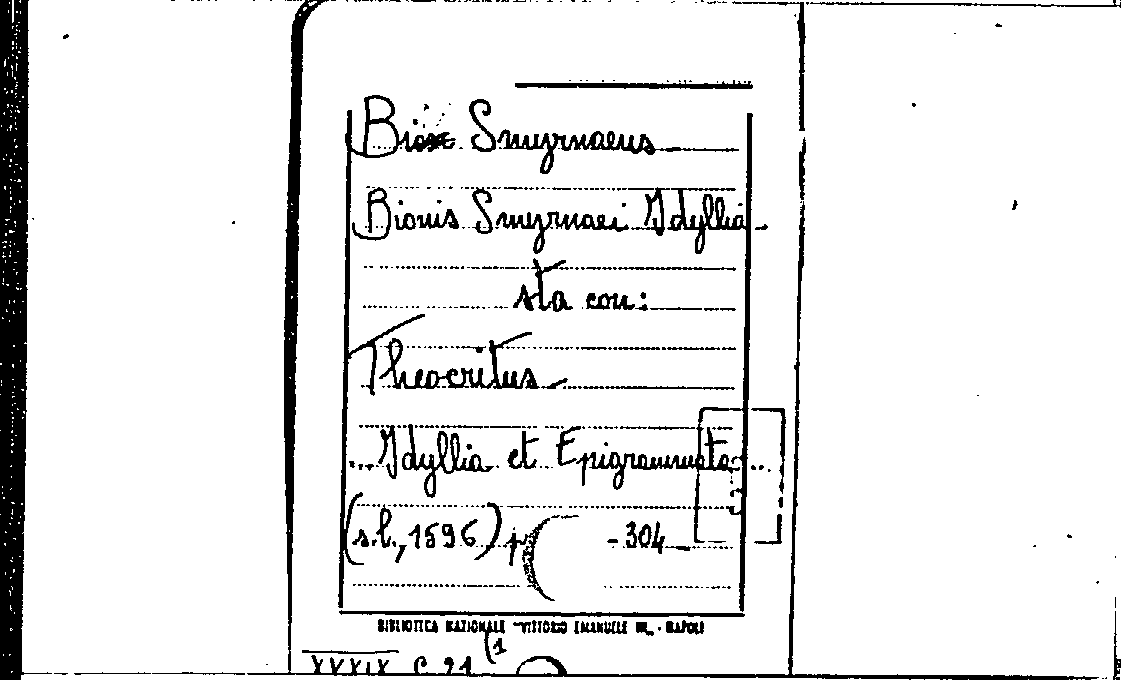 Bion Smyrnaeus
Bionis Smyrnaei Idyllia
sta con:
Theocritus
... Idyllia et Epigrammata ...
(s.l., 1596) p -304
BIBLIOTECA NAZIONALE "VITTORIO EMANUELE III" - NAPOLI
XXXIX C 21 (1